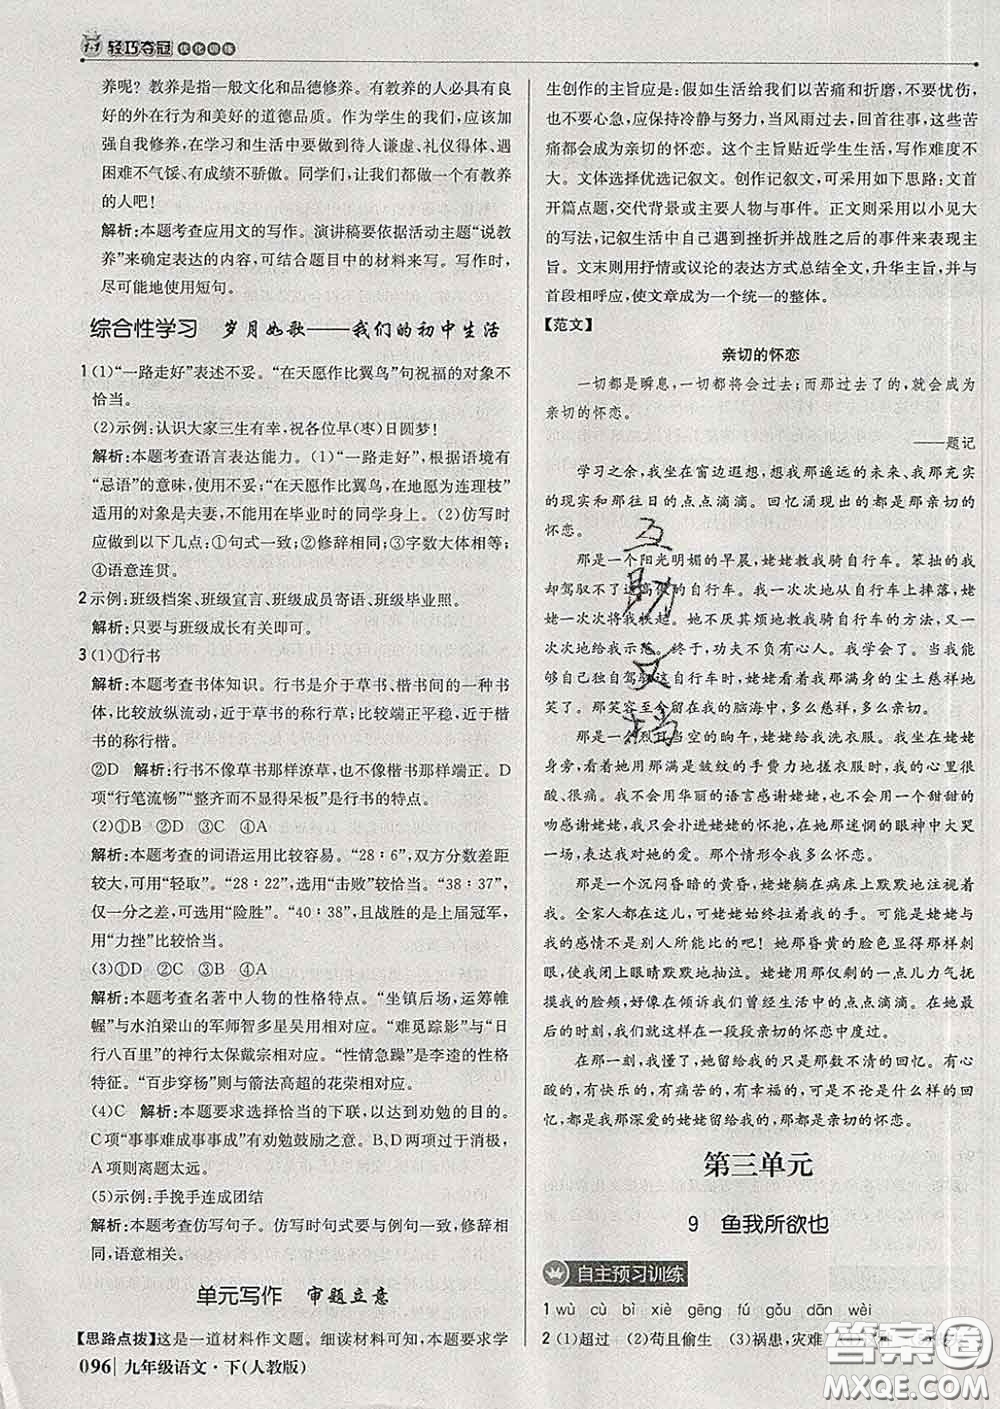 1+1 轻巧夺冠 优化训练
养呢？教养是指一般文化和品德修养。有教养的人必具有良
好的外在行为和美好的道德品质。作为学生的我们，应该加
强自我修养，在学习和生活中要做到待人谦虚、礼仪得体、遇
困难不气馁、有成绩不骄傲。同学们，让我们做一个有教养
的人吧！
解析：本题考查应用文的写作。演讲稿要依据活动主题“说教
养”来确定表达的内容，可结合题目中的材料来写。写作时，
尽可能地使用短句。
综合性学习 岁月如歌——我们的初中生活
1 (1)“一路走好”表述不妥。“在天愿作比翼鸟”句祝福的对象不
恰当。
(2)示例：认识大家三生有幸，祝各位早(枣)日圆梦！
解析：本题考查语言表达能力。(1)“一路走好”，根据语境有
“忌语”的意味，使用不得；“在天愿作比翼鸟，在地愿为连理枝”
适用的对象是夫妻，不能用在毕业时的同学身上。(2)仿写时
应做到以下几点：①句式一致；②修辞相同；③字数大体相等；
④语意连贯。
2 示例：班级档案、班级宣言、班级成员寄语、班级毕业照。
解析：只要与班级成长有关即可。
3 (1)①行书
解析：本题考查书体知识。行书是介于草书、楷书间的一种书
体，比较放纵流动，近于草书的称行草；比较端正平稳，近于楷
书的称行楷。
②D 解析：行书不像草书那样潦草，也不像楷书那样端正。D
项“行笔流畅”“整齐而不显得呆板”是行书的特点。
(2)①B ②D ③C ④A
解析：本题考查的词语运用比较容易。“28∶6”，双方分数差距
比较大，可用“轻取”。“28∶22”，选用“击败”较恰当。“38∶37”，
仅一分之差，可选用“险胜”。“40∶38”，且战胜的是上届冠军，
用“力挫”比较恰当。
(3)①D ②C ③B ④A
解析：本题考查名著中人物的性格特点。“坐镇后场，运筹帷
幄”与水泊梁山的军师智多星吴用相对应。“难觅踪影”与“日
行八百里”的神行太保戴宗相对应。“性情急躁”是李逵的性格
特征。“百步穿杨”则与箭法高超的花荣相对应。
(4)C 解析：本题要求选择恰当的下联，以达到劝勉的目的。
C项“事事难成事事成”有劝勉鼓励之意。B、D两项过于消极，
A项则离题太远。
(5)示例：手挽手连成团结
解析：本题考查仿写句子。仿写时句式要与例句一致，修辞相
同，语意相关。
单元写作 审题立意
【思路点拨】这是一道材料作文题。细读材料可知，本题要求学
096 九年级语文·下(人教版)
生创作的主旨应是：假如生活给我们以苦痛和折磨，不要忧伤，
也不要心急，应保持冷静与努力，当风雨过去，回首往事，这些苦
痛都会成为亲切的怀恋。这个主旨贴近学生生活，写作难度不
大。文体选择优选记叙文。创作记叙文，可采用如下思路：文首
开篇点题，交代背景或主要人物与事件。正文则采用以小见大
的写法，记叙生活中自己遇到挫折并战胜之后的事件来表现主
旨。文末则用抒情或议论的表达方式总结全文，升华主旨，并与
首段相呼应，使文章成为一个统一的整体。
【范文】
亲切的怀恋
一切都是瞬息，一切都将会过去；而那过去了的，就会成为
亲切的怀恋。
——题记
学习之余，我坐在窗边遐想，想我那遥远的未来、我那充实
的现实和那往日的点点滴滴。回忆涌现出的都是那亲切的
怀恋。
那是一个阳光明媚的早晨，姥姥教我骑自行车。笨拙的我
却驾驭不了这高傲的自行车。我一次次地从自行车上摔落，姥
姥一次次将我扶起。她不厌其烦地教我骑自行车的方法，一次
次地给我示范。终于，功夫不负有心人。我学会了。当我能够
自己独自驾驭这自行车时，她看着我那满身的尘土慈祥地
笑了。那笑容至今留在我的脑海中，多么慈祥，多么亲切。
那是一个烈日当空的晌午，姥姥给我洗衣服。我坐在姥姥
身旁，看着她那满是皱纹的手费力地搓衣服时，我的心里很
酸、很痛。我不能用华丽的语言感谢姥姥，不能用一个甜甜的
吻感谢姥姥，我只会扑进姥姥的怀抱，在她那迷惘的眼神中大哭
一场，表达我对她的爱。那个情形令我多么怀恋。
那是一个沉闷昏暗的黄昏，姥姥躺在病床上默默地注视着
我。全家人都在这儿，可姥姥始终拉着我的手。可能是姥姥与
我的感情不是别人所能比的吧！她那昏黄的脸色显得那样刺
眼，使我闭上眼睛默默地抽泣。姥姥用那仅剩的一点儿力气抚
摸我的脸颊，好像在倾诉我们曾经生活中的点点滴滴。在她最
后的时刻，我们就这样在一段段亲切的怀恋中度过。
在那一刻，我懂了，她留给我的只是那数不清的回忆。有心
酸的，有快乐的，有痛苦的，有幸福的。可是不论是什么样的回
忆，都是我那深爱的姥姥留给我的，那都是亲切的怀恋。
第三单元
9 鱼我所欲也
自主预习训练
1 wù cù bì xiè gēng fú gǒu dān wèi
2 (1)超过 (2)苟且偷生 (3)祸患，灾难
互助文档
答案圈
MXQE.COM